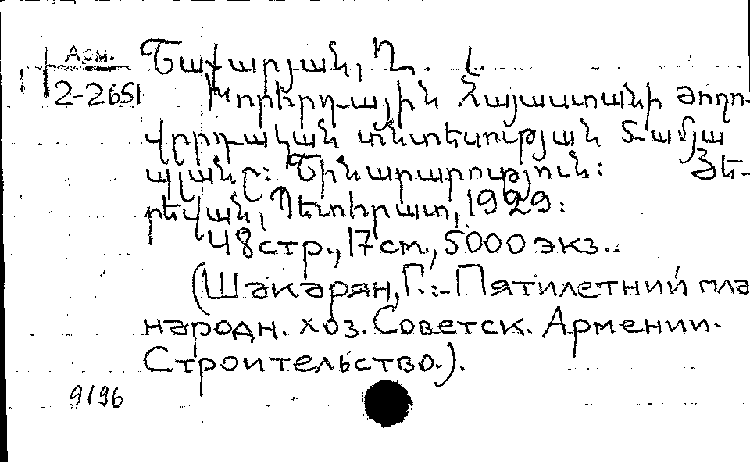 Арм.
2-2651
Շաքարյան, Ղ. Լ.
Խորհրդային Հայաստանի ժողո-
վրդական տնտեսության 5-ամյա
պլանը: Շինարարություն: Յե-
րեվան, Պետհրատ, 1929:
48 стр., 17 cm., 5000 экз..
(Шакарян, Г.:-Пятилетний пла
народн. хоз. Советск. Армении.
Строительство.).
9196